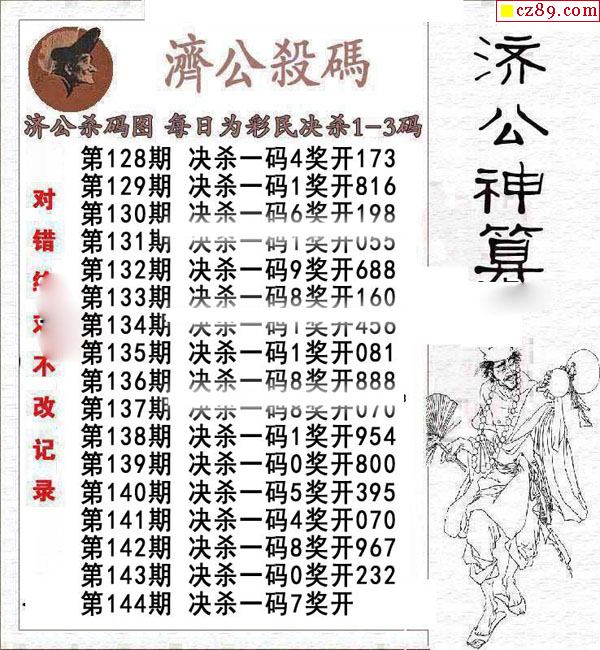 cz89.com
濟公殺碼
济公神算
济公杀码图 每日为彩民决杀1-3码
第128期 决杀一码4奖开173
第129期 决杀一码1奖开816
第130期 决杀一码6奖开198
第131期 决杀一码1奖开055
第132期 决杀一码9奖开688
第133期 决杀一码8奖开160
第134期 决杀一码1奖开456
第135期 决杀一码1奖开081
第136期 决杀一码8奖开888
第137期 决杀一码8奖开070
第138期 决杀一码1奖开954
第139期 决杀一码0奖开800
第140期 决杀一码5奖开395
第141期 决杀一码4奖开070
第142期 决杀一码8奖开967
第143期 决杀一码0奖开232
第144期 决杀一码7奖开
对错 不改记录